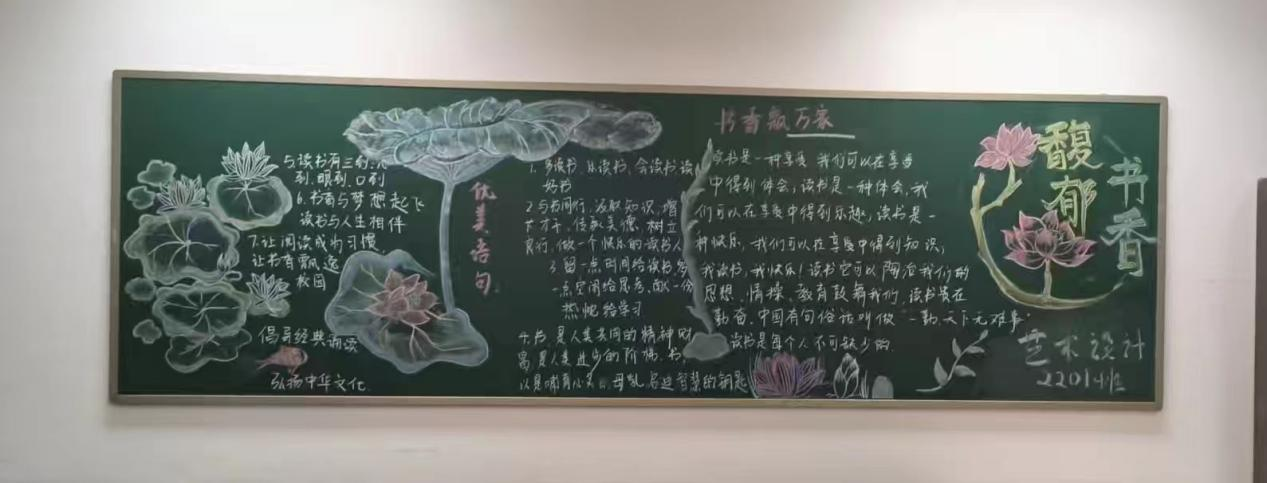 书香馥郁
艺术设计
2201班
书香飘万家
读书是一种享受 我们可以在享受
中得到体会,读书是一种体会,我
们可以在享受中得到乐趣,读书是一
种快乐,我们可以在享受中得到知识,
我读书,我快乐!读书它可以陶冶我们的
思想、情操、教育鼓舞我们,读书贵在
勤奋,中国有句俗话叫做"一勤天下无难事"
读书是每个人不可缺少的.
优美语句
1.多读书、乐读书、会读书读
好书
2.与书同行,汲取知识,增
下才干,传承美德,树立
良行,做一个快乐的读书人
3.留一点时间给读书,多
一点空间给思考,献一份
热忱给学习
4.书,是人类共同的精神财
富,是人类进步的阶梯,书
以是哺育心灵的母乳,启迪智慧的钥匙
与读书有三到:心
到、眼到、口到
6.书香与梦想起飞
读书与人生相伴
7.让阅读成为习惯
让书香飘逸
校园
倡导经典诵读
弘扬中华文化